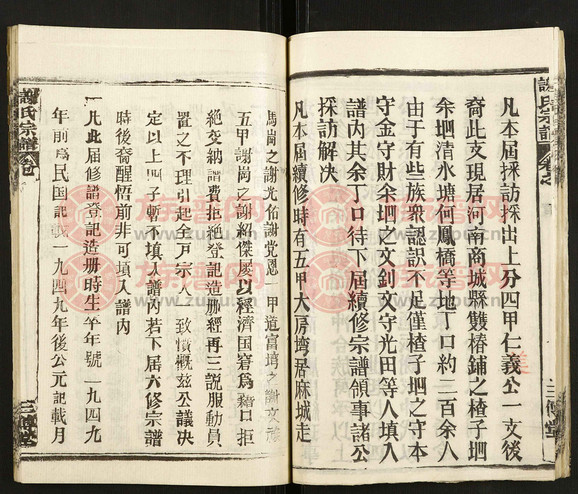 謝氏宗譜
凡本屆採訪採出上分四甲仁義公一支後
裔此支現居河南商城縣雙椿鋪之楂子垇
余垇清水塘何鳳橋等地丁口約二百余八
由于有些族衆認訟不足僅楂子垇之守本
守金守財余垇之文釗文守光田等人填入
譜内其余丁口待下屆續修宗譜領事諸公
採訪解决
凡本屆續修時有五甲大房塆居麻城走
三傳堂
馬崗之謝光佑謝党恩一甲道富塆之謝文
五甲謝崗之謝紹傑慶以經濟国窘爲藉口拒
絶变納譜費拒絶登記造册經再三説服動員
置之不理引起全戸宗人一致憤慨兹公議决
定以上四子暫不填入譜内若下屆六修宗譜
時後裔醒悟前非可填入譜内
一凡此屆修譜登記造册時生卒年號一九四九
年前爲民国記載一九四九年後公元記載月
謝氏宗譜
三傳堂
族譜网
www.zupu.cn